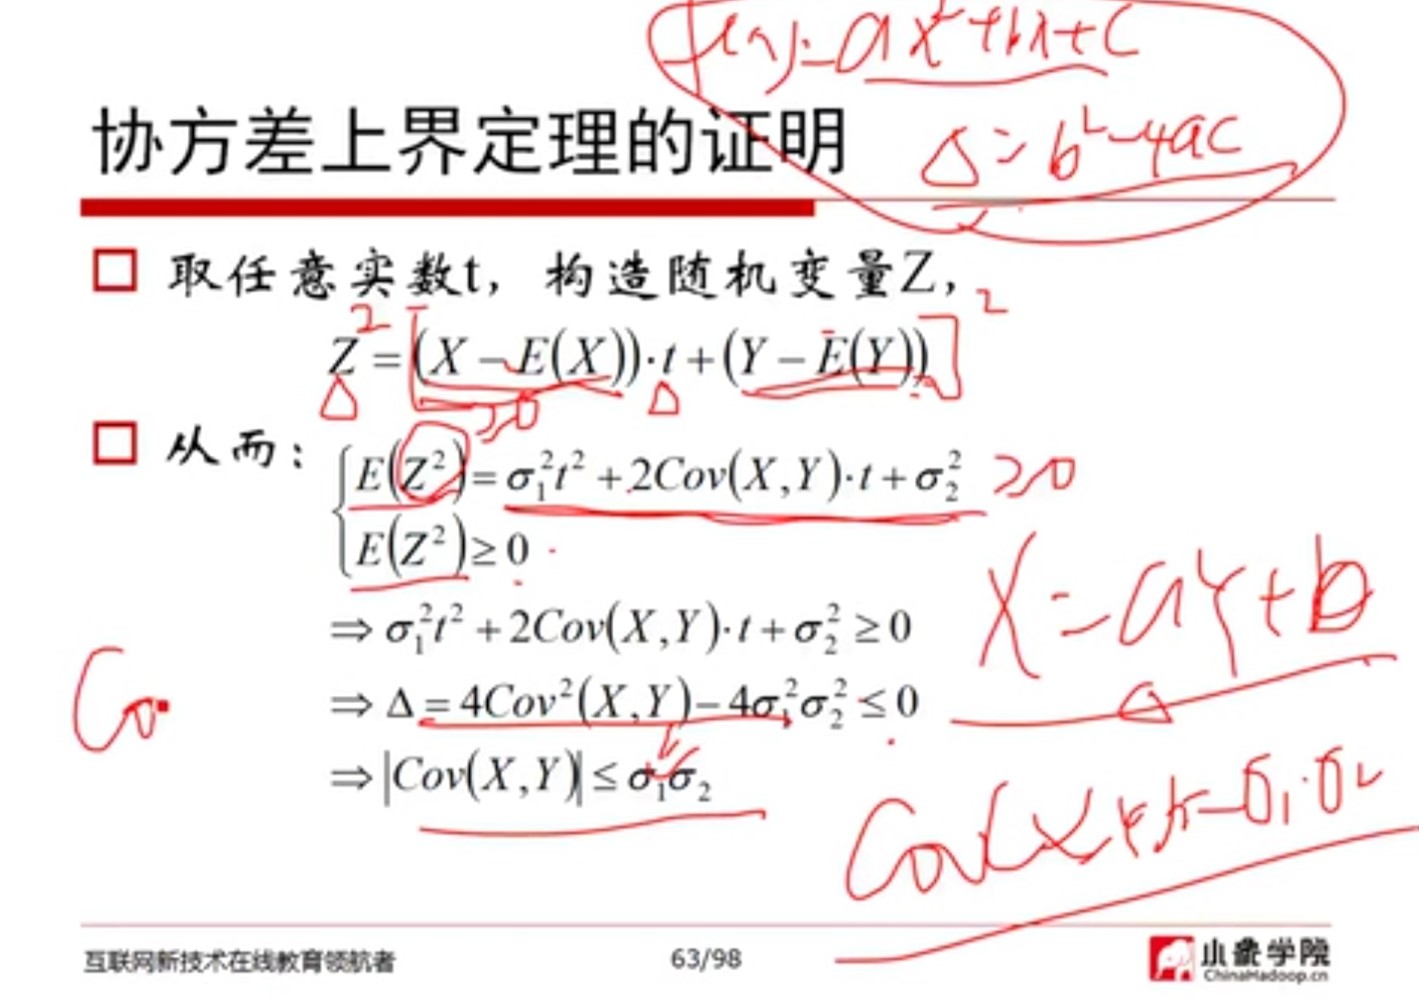 f(x)=ax²+bx+c
协方差上界定理的证明
Δ=b²-4ac
□ 取任意实数t，构造随机变量Z，
Z²=[(X-E(X))·t+(Y-E(Y))]²
≥0
□ 从而：
E(Z²)=σ₁²t²+2Cov(X,Y)·t+σ₂² ≥0
E(Z²)≥0
X=aY+b
⇒σ₁²t²+2Cov(X,Y)·t+σ₂²≥0
⇒Δ=4Cov²(X,Y)-4σ₁²σ₂²≤0
⇒|Cov(X,Y)|≤σ₁σ₂
Cov(X,Y)=σ₁·σ₂
互联网新技术在线教育领航者
63/98
小象学院
ChinaHadoop.cn